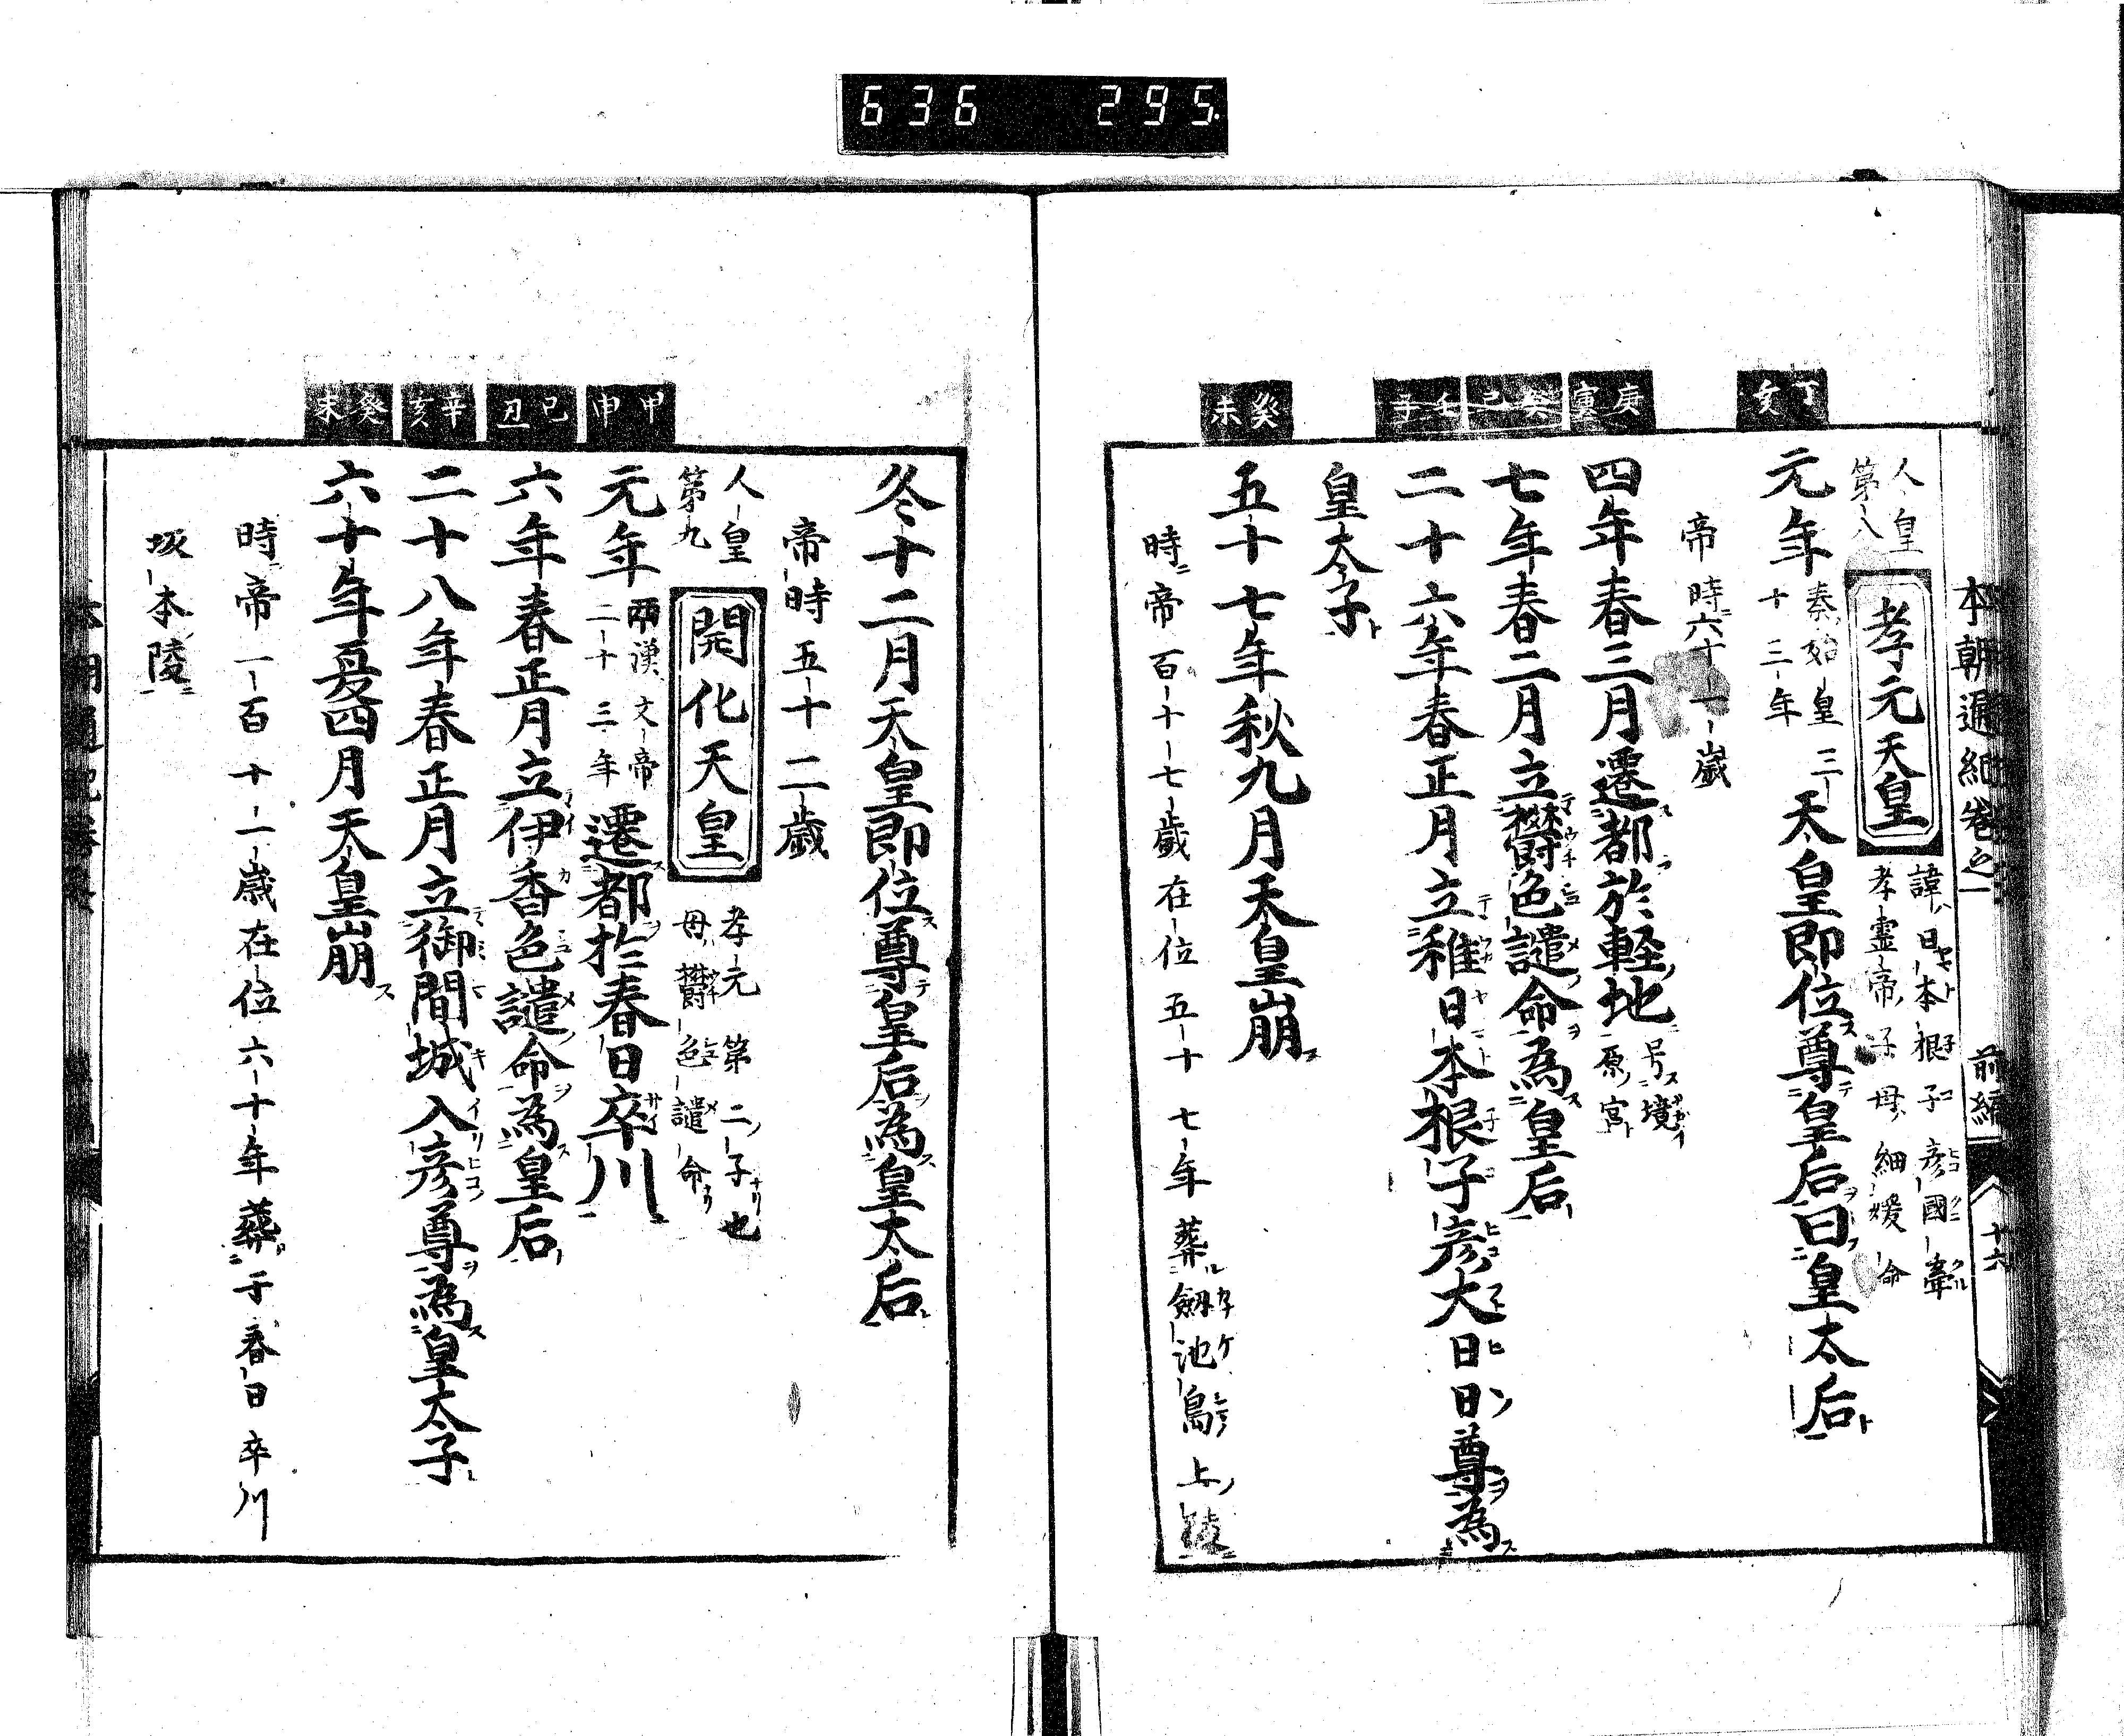 636 295.
本朝通紀卷之一 前編 十六
人皇
第八
孝元天皇
諱日本根子彦國牽
孝靈帝子母細媛命
丁亥
元年
秦始皇三
十三年
天皇即位尊皇后曰皇太后
帝時六十一歳
庚寅
四年春三月遷都於軽地
号境
原宮
癸巳
七年春二月立欝色謎命為皇后
壬子
二十六年春正月立稚日本根子彦大日日尊為
皇太子
癸未
五十七年秋九月天皇崩
時帝百十七歳在位五十七年葬劔池島上陵
冬十二月天皇即位尊皇后為皇太后
帝時五十二歳
人皇
第九
開化天皇
孝元第二子也
母欝色謎命
甲申
元年
両漢文帝
二十三年
遷都於春日率川
己丑
六年春正月立伊香色謎命為皇后
辛亥
二十八年春正月立御間城入彦尊為皇太子
癸未
六十年夏四月天皇崩
時帝一百十一歳在位六十年葬于春日率川
坂本陵